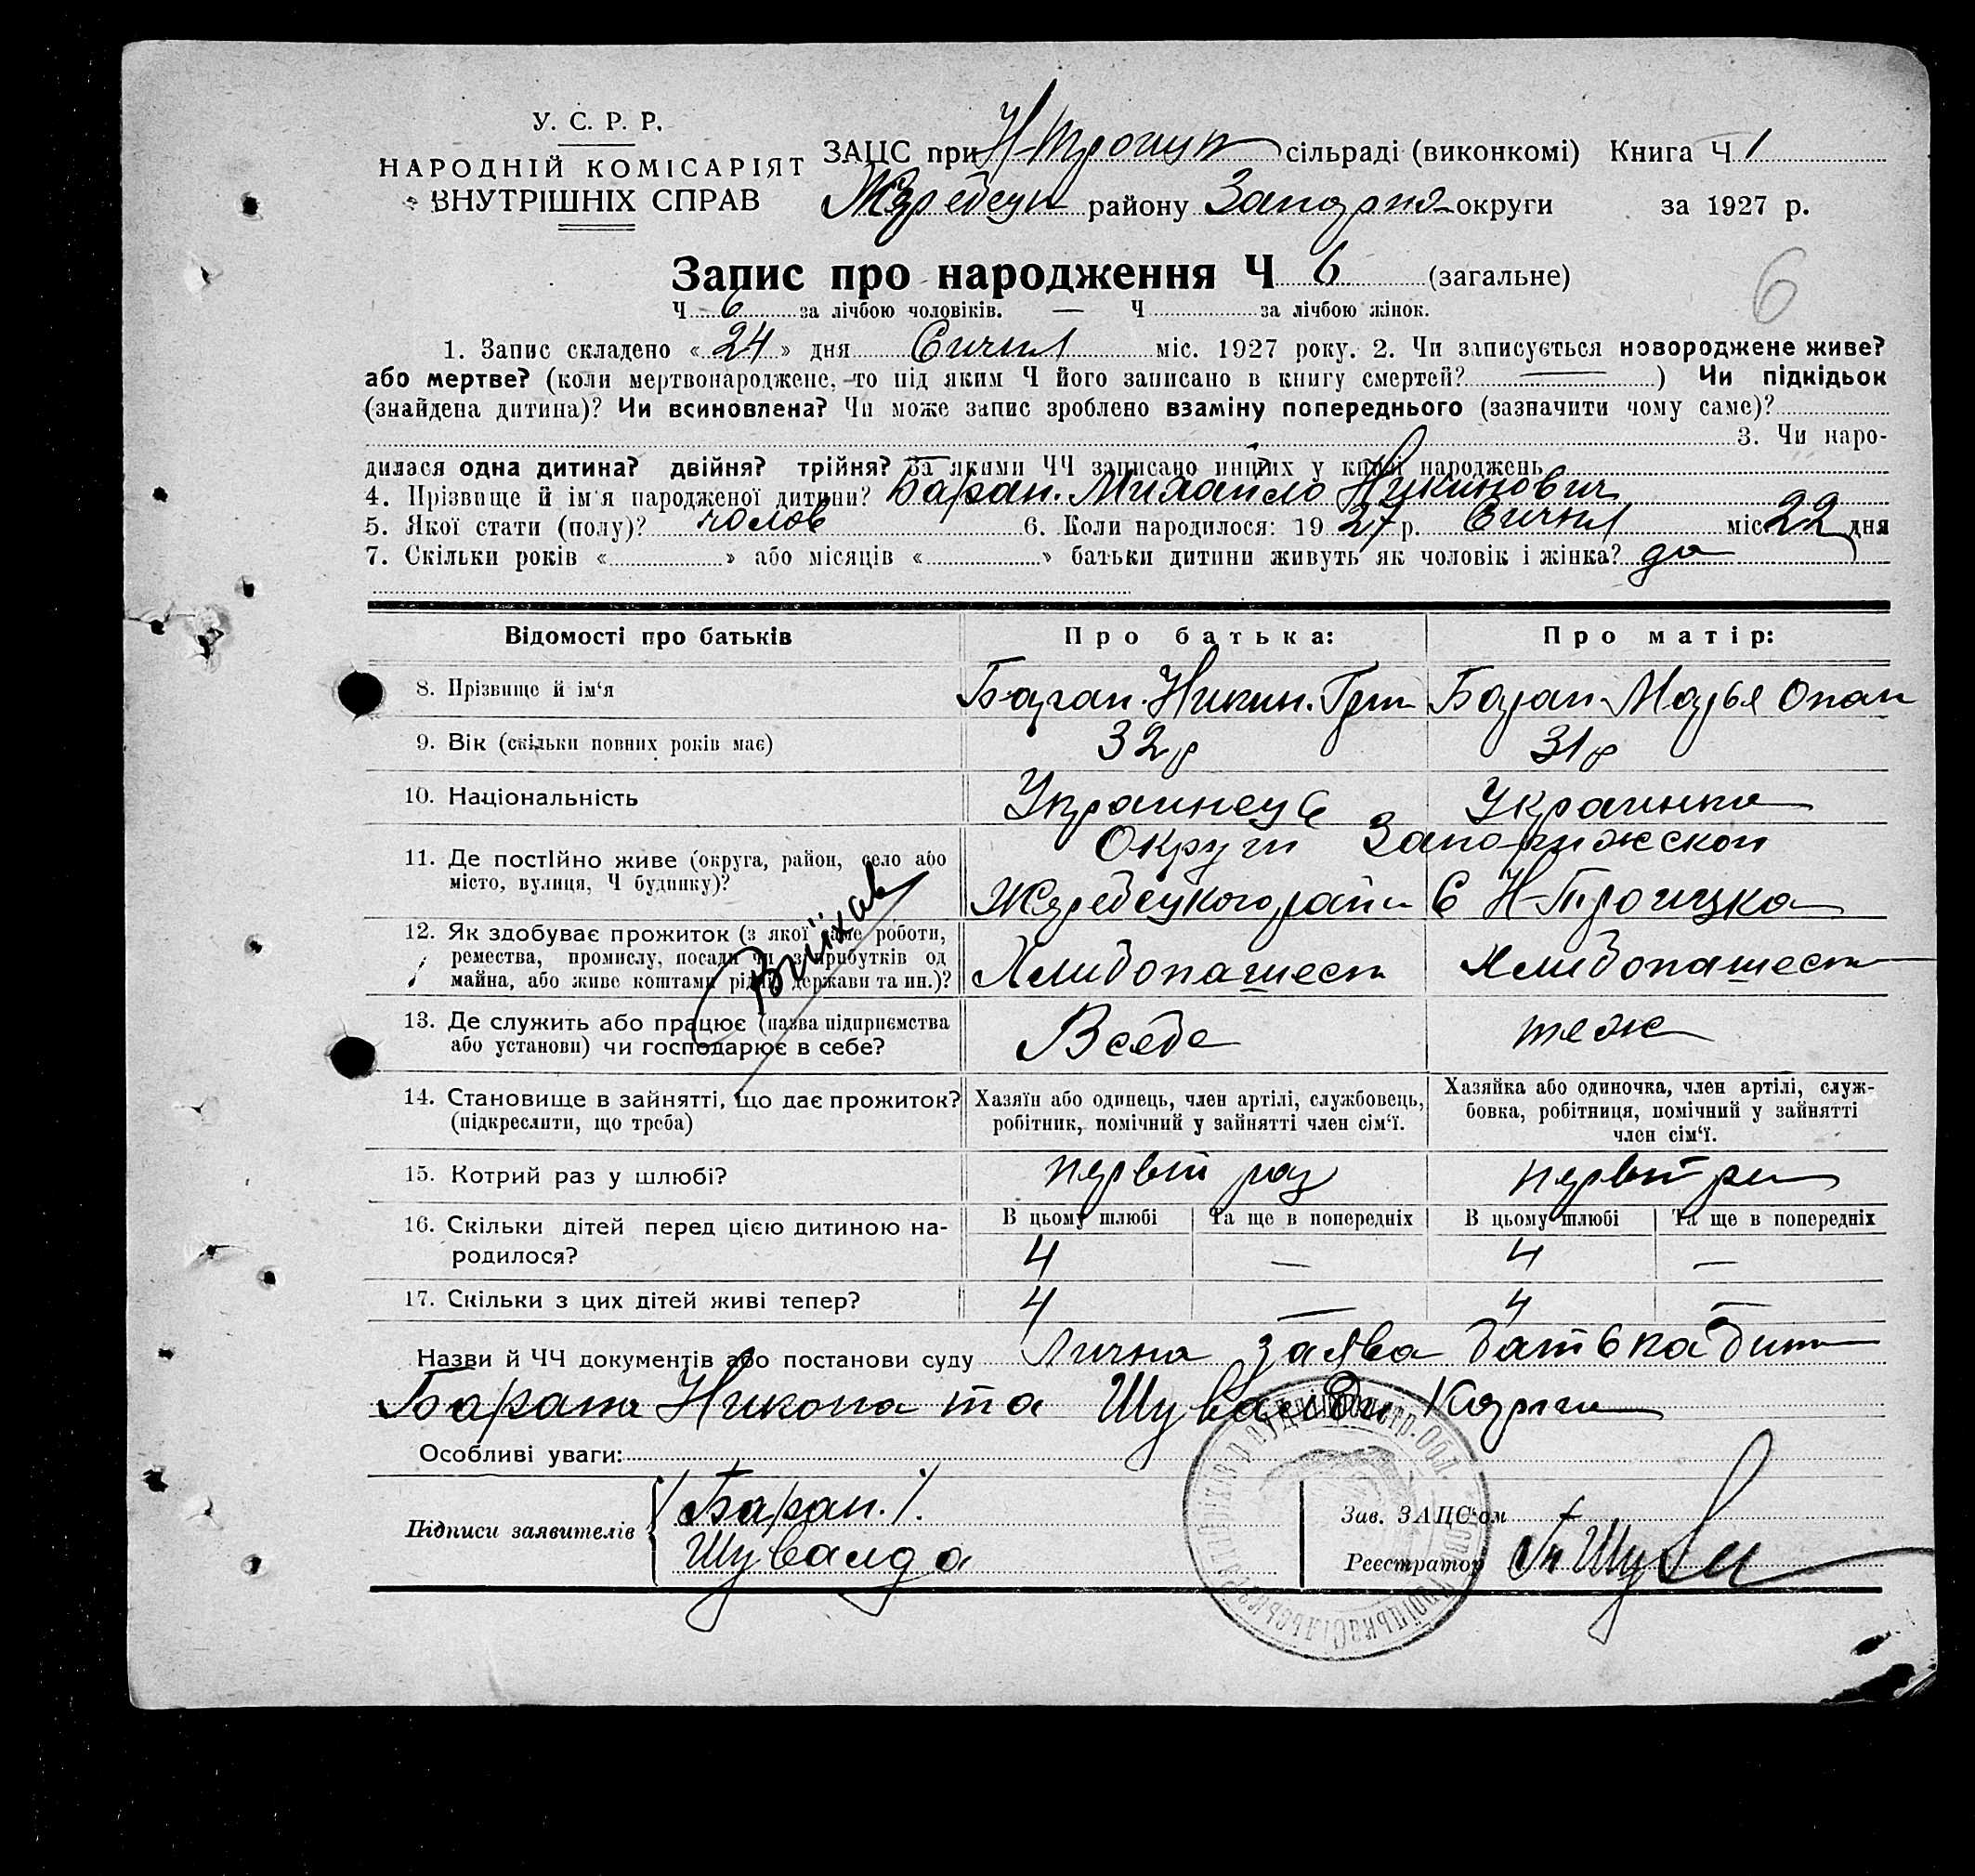 У. С. Р. Р.
НАРОДНІЙ КОМІСАРІЯТ
ВНУТРІШНІХ СПРАВ
ЗАЦС при Н-Троицк сільраді (виконкомі) Книга Ч 1
Жеребец району Запорис округи за 1927 р.
Запис про народження Ч 6 (загальне)
6
Ч 6 за лічбою чоловіків. — Ч за лічбою жінок.
1. Запис складено « 24 » дня Сичня міс. 1927 року. 2. Чи записується новороджене живе?
або мертве? (коли мертвонароджене, то під яким Ч його записано в книгу смертей? — ) Чи підкідьок
(знайдена дитина)? Чи всиновлена? Чи може запис зроблено взаміну попереднього (зазначити чому саме)?
3. Чи наро-
дилася одна дитина? двійня? трійня? За якими ЧЧ записано инших у книзі народжень
4. Прізвище й ім'я народженої дитини? Баран. Михайло Никинович
5. Якої стати (полу)? чолов 6. Коли народилося: 1927 р. Сичня міс 22 дня
7. Скільки років « » або місяців « » батьки дитини живуть як чоловік і жінка? да
Відомості про батьків Про батька: Про матір:
8. Прізвище й ім'я Баран. Никин. Гри Баран Марья Опан
9. Вік (скільки повних років має) 32 р 31 р
10. Національність Украинець Украинка
11. Де постійно живе (округа, район, село або місто, вулиця, Ч будинку)? Округи Запорижской
Жеребецкого райн С Н-Троицка
Виїхав
12. Як здобуває прожиток (з якої саме роботи,
ремества, промислу, посади чи з прибутків од
майна, або живе коштами рідні, держави та ин.)? Хлибопашест Хлибопашест
13. Де служить або працює (назва підприємства
або установи) чи господарює в себе? Всебе теж
14. Становище в зайнятті, що дає прожиток?
(підкреслити, що треба)
Хазяїн або одинець, член артілі, службовець,
робітник, помічний у зайнятті член сім'ї.
Хазяйка або одиночка, член артілі, служ-
бовка, робітниця, помічний у зайнятті
член сім'ї.
15. Котрий раз у шлюбі? первий раз первий раз
16. Скільки дітей перед цією дитиною на-
родилося?
В цьому шлюбі Та ще в попередніх В цьому шлюбі Та ще в попередніх
4 — 4 —
17. Скільки з цих дітей живі тепер? 4 — 4 —
Назви й ЧЧ документів або постанови суду Лична заява батька дит
Барана Никона та Шувалди
Особливі уваги:
Підписи заявителів
Баран.
Шувалда
Зав. ЗАЦС'ом
Реєстратор